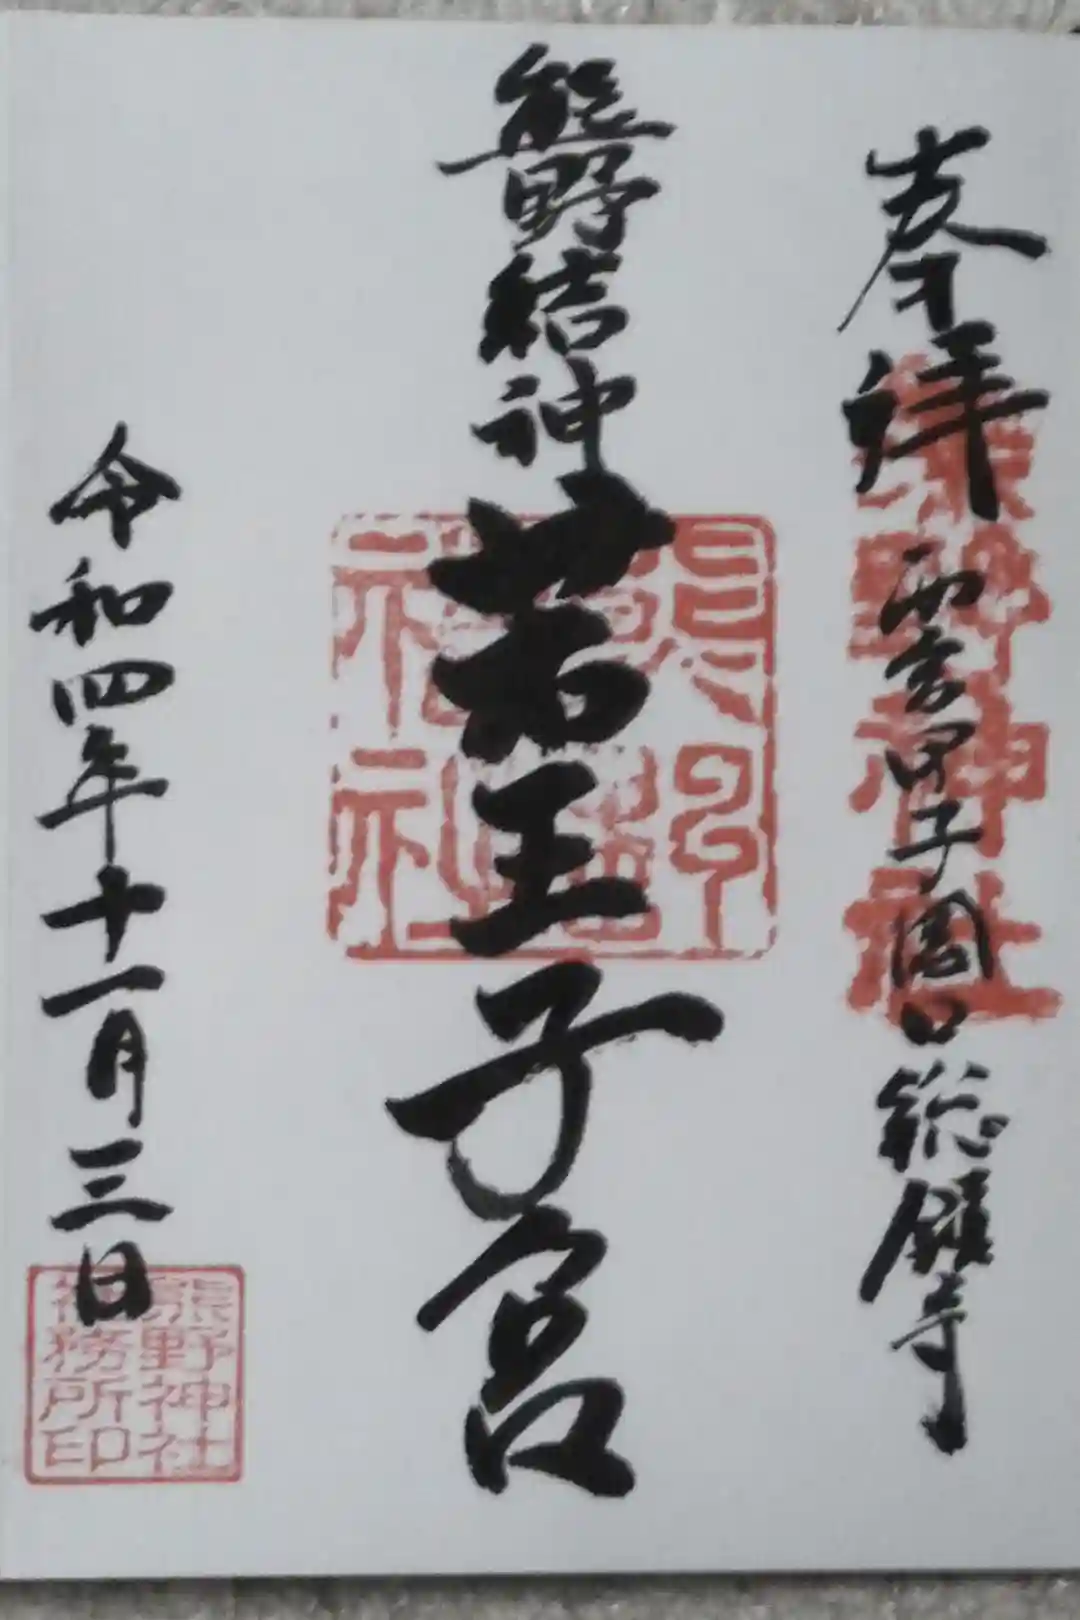 奉拝
西宮甲子園口総鎮守
熊野神社
熊野結神
若王子宮
令和四年十一月三日
熊野神社
社務所印